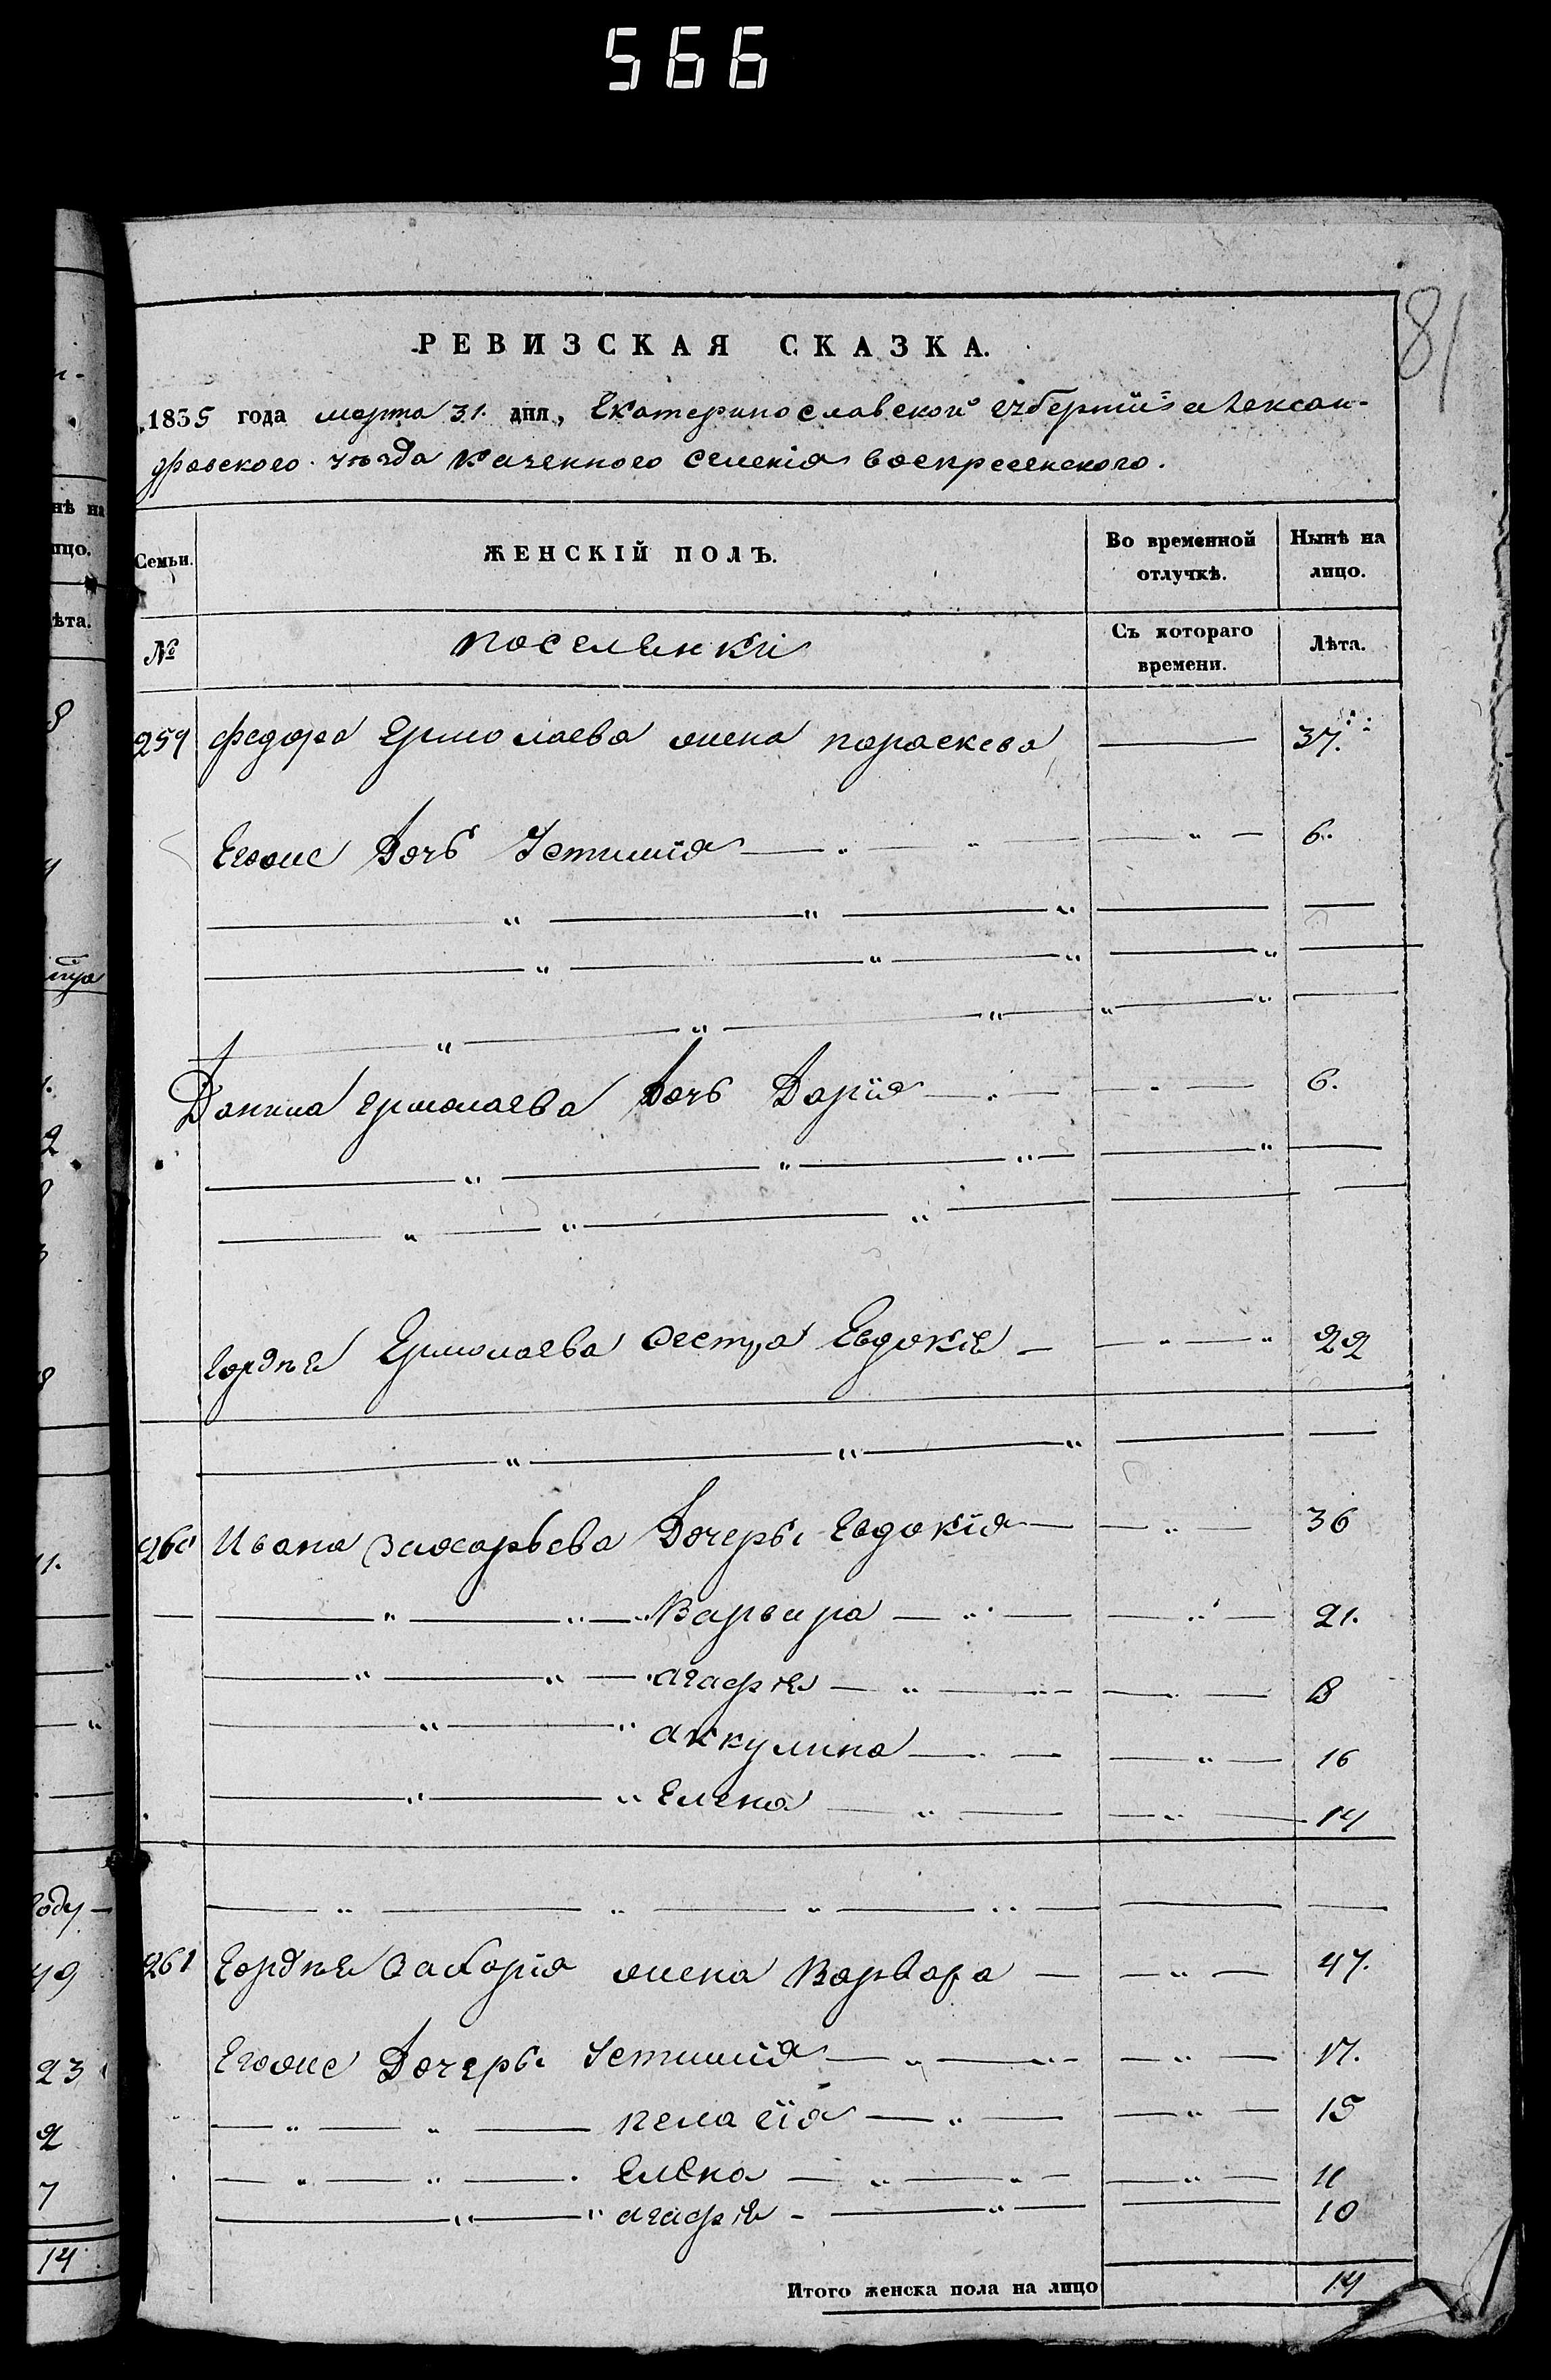 566
81
РЕВИЗСКАЯ СКАЗКА.
1835 года марта 31. дня, Екатеринославской губернии александ-
ровского уезда казенного селенія воскресенского.
Семьи.
ЖЕНСКІЙ ПОЛЪ.
Во временной отлучкѣ.
Нынѣ на лицо.
№
поселенки
Съ котораго времени.
Лѣта.
259 федора Ермолаева жена параскева 37.
Егоже Дочь Устинія 6.
Данила ермолаева Дочь Дарія 6.
Гордѣя Ермолаева сестра Евдокія 22
260 Ивана захарьева Дочерьи Евдокія 36
Варвара 21.
агафія 18
аккулина 16
Елена 14
261 Гордѣя жена Варвара 47.
Егоже Дочерьи Устинія 17.
пелагія 15
Елена 11
агафія 10
Итого женска пола на лицо 14
нѣ на
лицо.
ѣта.
году
49
23
2
7
14